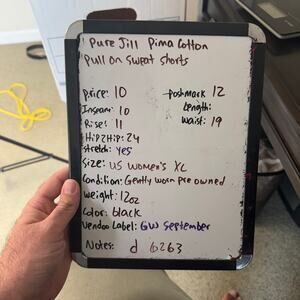 Pure Jill Pima Cotton
Pull on Sweat Shorts
Price: 10
Postmark 12
Inseam: 10
Length:
Rise: 11
Waist: 19
Hip2Hip: 24
Stretch: Yes
Size: US Women's XL
Condition: Gently worn Pre owned
Weight: 12oz
Color: black
Vendoo Label: GW September
Notes: d 6263